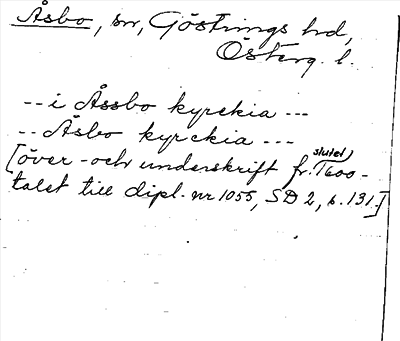 Åsbo, sn, Göstrings hd,
Österg. l.
-- i Åssbo kyrckia ---
-- Åsbo kyrckia ---
[över- och underskrift fr. slutet 1600-
talet till dipl. nr 1055, SD 2, s. 131.]